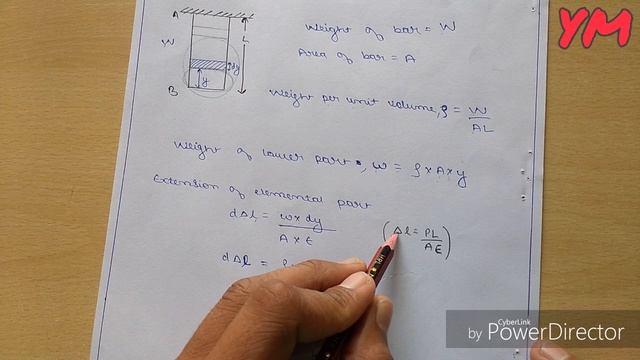 YM
A
W
L
dy
y
B
Weight of bar = W
Area of bar = A
Weight per unit volume, ρ = W / AL
Weight of lower part, w = ρ × A × y
Extension of elemental part
dΔl = w × dy / A × E
(Δl = PL / AE)
dΔl =
CyberLink
by PowerDirector